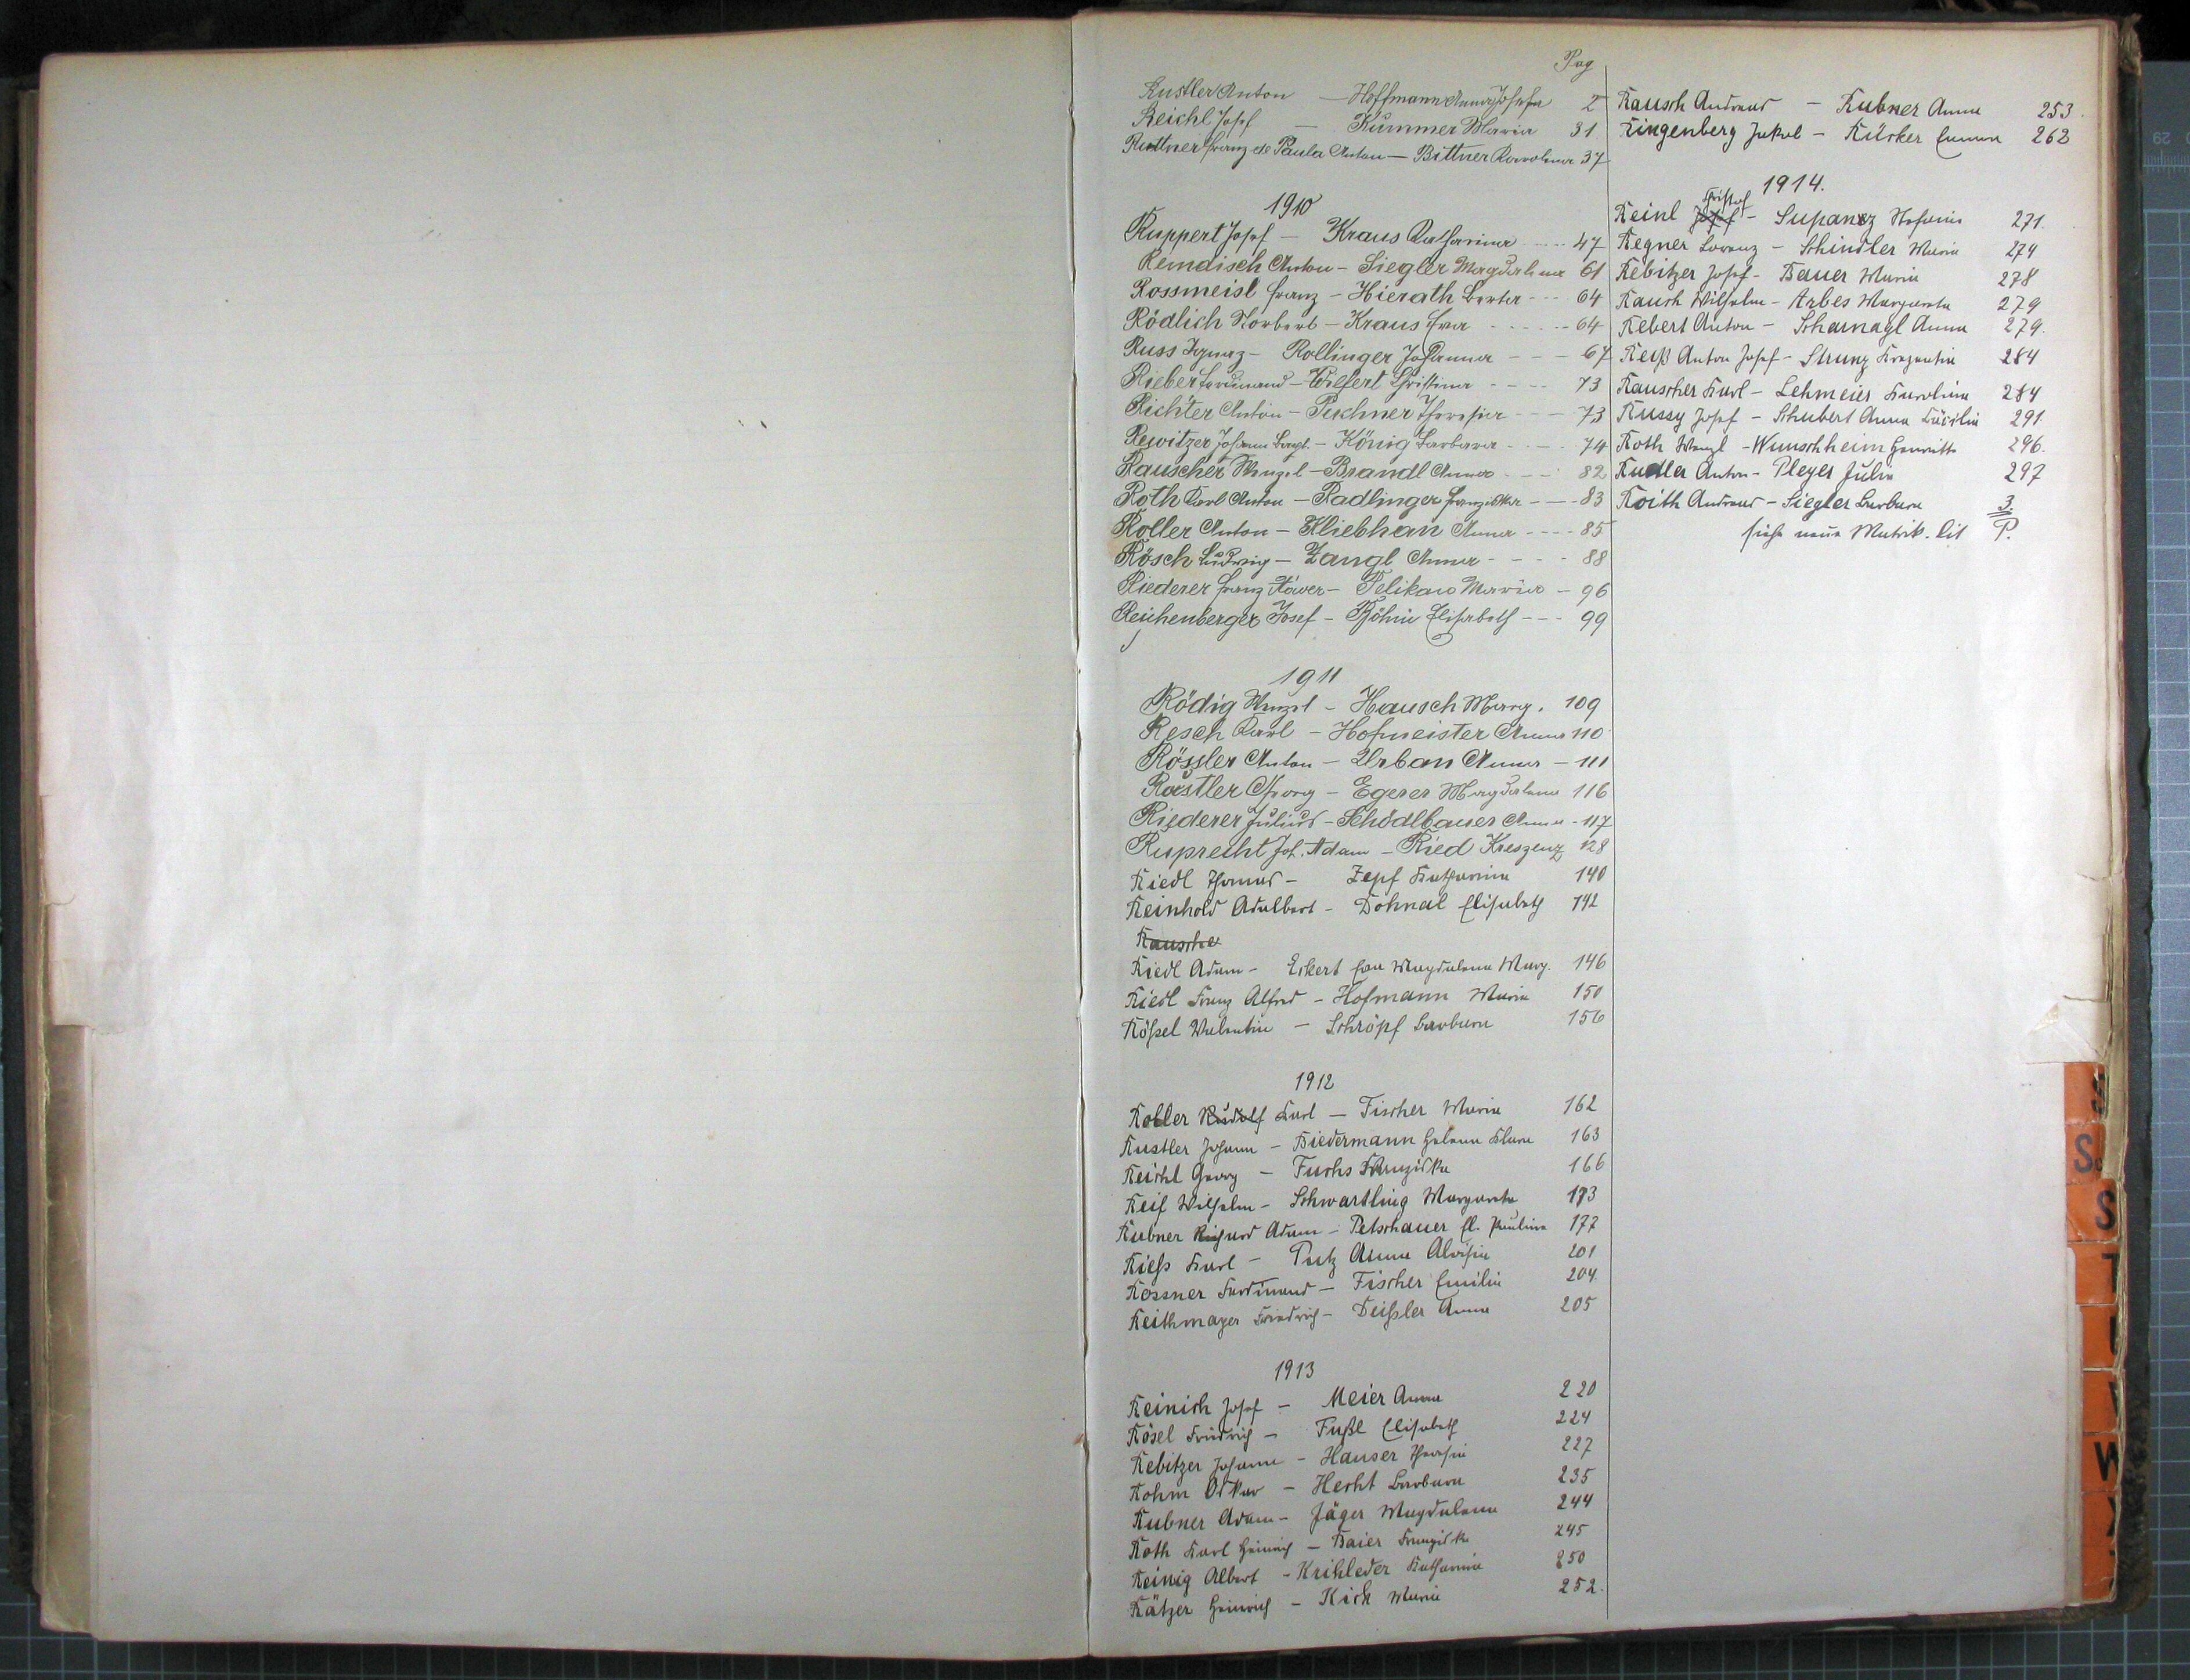 Pag
Rustler Anton — Hoffmann Anna Josefa 2
Reichl Josef — Kummer Maria 31
Ruttner Franz de Paula Anton — Bittner Karolina 37
1910
Ruppert Josef — Kraus Katharina 47
Remdisch Anton — Siegler Magdalena 61
Rossmeisl Franz — Hierath Berta 64
Rödlich Norbert — Kraus Eva 64
Russ Ignaz — Rollinger Johanna 67
Rieber Ferdinand — Wiefert Christina 73
Richter Anton — Puchner Theresia 73
Rewitzer Johann Bapt. — König Barbara 74
Rauscher Wenzel — Brandl Anna 82
Roth Karl Anton — Padlinger Franziska 83
Roller Anton — Kliebhan Anna 85
Rösch Ludwig — Zangl Anna 88
Riederer Franz Xaver — Pelikan Maria 96
Reichenberger Josef — Böhm Elisabeth 99
1911
Rödig Wenzel — Hausch Marg. 109
Resch Karl — Hofmeister Anna 110
Rössler Anton — Urban Anna — 111
Rustler Georg — Egerer Magdalena 116
Riederer Julius — Schödlbauer Anna — 117
Ruprecht Joh. Adam — Ried Kreszenz 128
Riedl Thomas — Zepf Katharina 140
Reinhold Adalbert — Dohnal Elisabeth 142
Rausche
Riedl Adam — Eckert Eva Magdalena Marg. 146
Riedl Franz Alfred — Hofmann Maria 150
Rößel Valentin — Schröpf Barbara 156
1912
Roller Rudolf Karl — Fischer Maria 162
Rustler Johann — Biedermann Helena Klara 163
Reichl Georg — Fuchs Franziska 166
Reif Wilhelm — Schwartling Margareta 173
Rubner Richard Adam — Petschauer El. Paulina 177
Rieß Karl — Putz Anna Aloisia 201
Rossner Ferdinand — Fischer Emilie 204.
Reithmayer Friedrich — Deißler Anna 205
1913
Reinich Josef — Meier Anna 220
Rösel Friedrich — Fußl Elisabeth 224
Rebitzer Johann — Hauser Theresia 227
Rohm Oskar — Hecht Barbara 235
Rubner Adam — Jäger Magdalena 244
Roth Karl Heinrich — Baier Franziska 245
Reinig Albert — Krihleder Katharina 250
Rätzer Heinrich — Kick Maria 252.
Rausch Andreas — Rubner Anna 253.
Ringenberg Jakob — Rücker Emma 262
1914.
Kristof
Reinl Josef — Supancz Stefanie 271.
Regner Lorenz — Schindler Maria 274
Rebitzer Josef — Bauer Maria 278
Rauch Wilhelm — Arbes Margareta 279
Rebert Anton — Scharnagl Anna 279.
Reiß Anton Josef — Strunz Kreszentia 284
Rauscher Karl — Lehmeier Karolina 284
Russy Josef — Schubert Anna Cäcilia 291.
Roth Wenzl — Wunschheim Henriette 296.
Rudler Anton — Pleyer Julie 297
Roith Andreas — Siegler Barbara 3.
siehe neue Matrik. lit P.
S
S
T
U
V
W